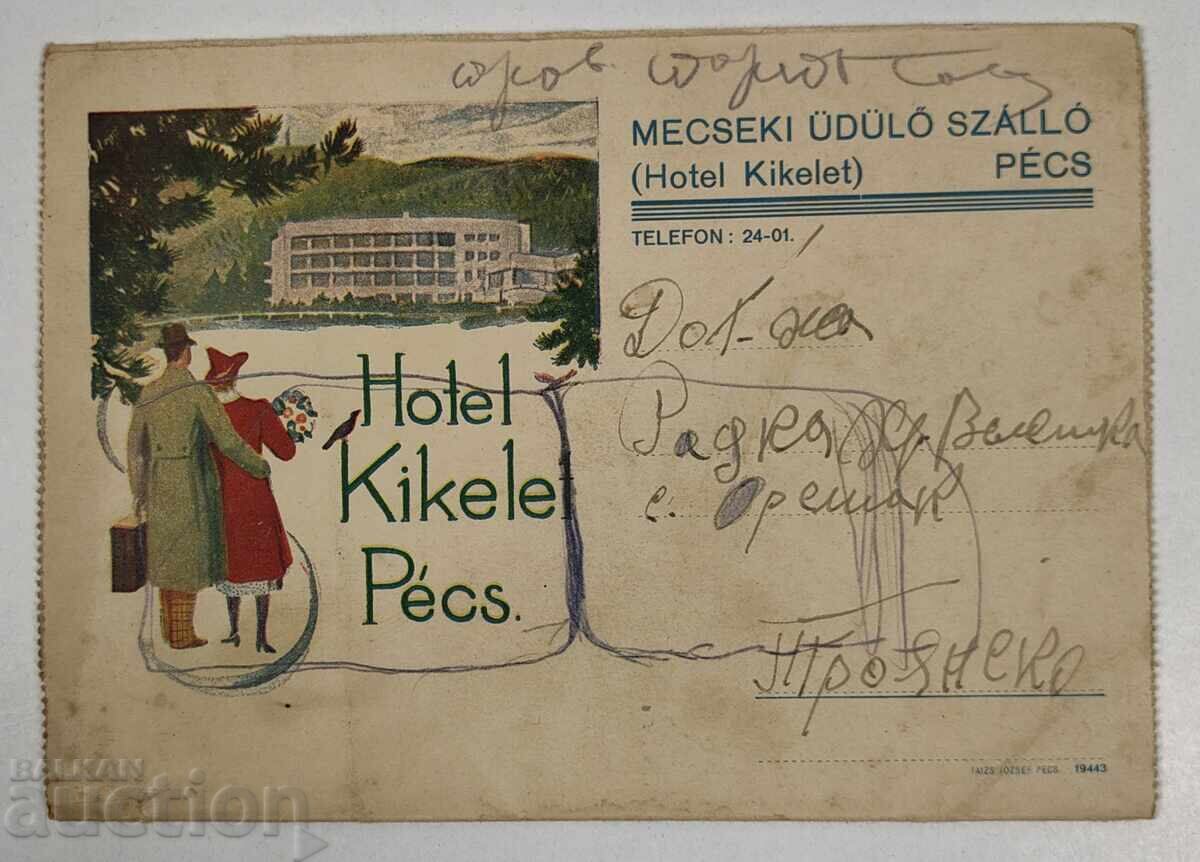 MECSEKI ÜDÜLŐ SZÁLLÓ
(Hotel Kikelet) PÉCS
TELEFON: 24-01.
Hotel
Kikele
Pécs.
Радка
с. Орешак
Троянско
TAIZS JÓZSEF PÉCS. 19443
BALKAN
auction